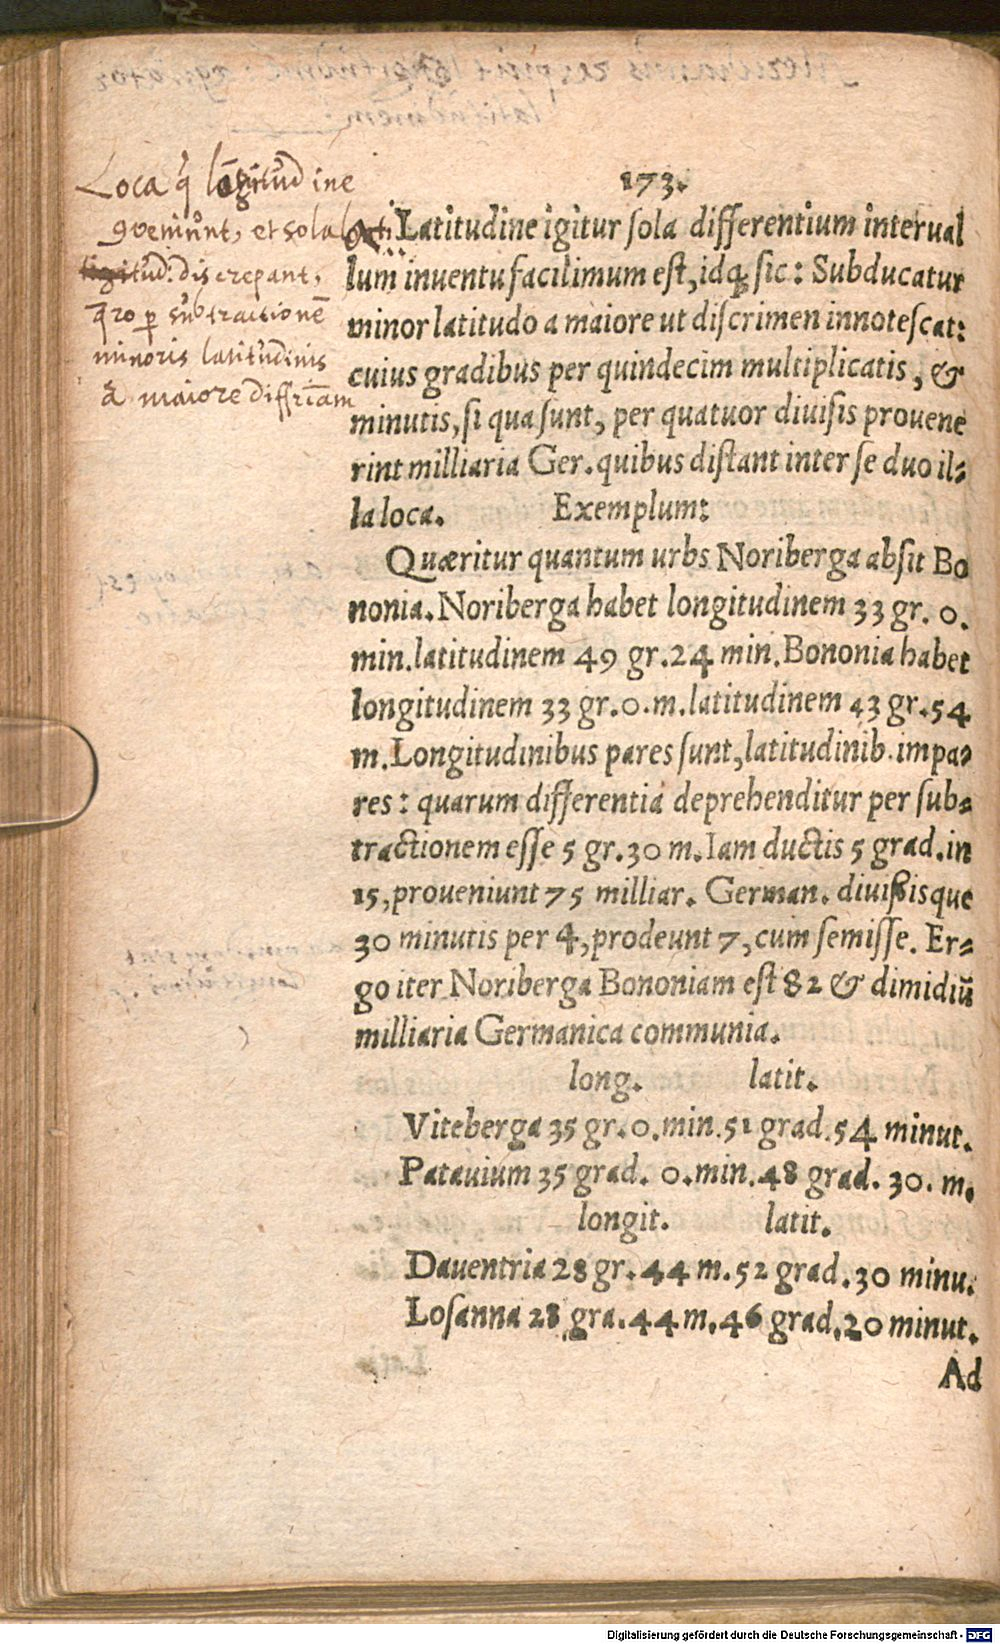 Loca q̃ lõgitudine
9veniunt, et sola lati
tud: discrepant,
q̃ro p subtractionē
minoris latitudinis
à maiore diffr̃iam
173.
Latitudine igitur sola differentium interual
lum inuentu facilimum est, idq; sic: Subducatur
minor latitudo a maiore ut discrimen innotescat:
cuius gradibus per quindecim multiplicatis, &
minutis, si qua sunt, per quatuor diuisis prouene
rint milliaria Ger. quibus distant inter se duo il-
la loca. Exemplum:
Quæritur quantum urbs Noriberga absit Bo
nonia. Noriberga habet longitudinem 33 gr. 0.
min. latitudinem 49 gr. 24 min. Bononia habet
longitudinem 33 gr. 0. m. latitudinem 43 gr. 54
m. Longitudinibus pares sunt, latitudinib. impa-
res: quarum differentia deprehenditur per sub-
tractionem esse 5 gr. 30 m. Iam ductis 5 grad. in
15, proueniunt 75 milliar. German. diuißisque
30 minutis per 4, prodeunt 7, cum semisse. Er-
go iter Noriberga Bononiam est 82 & dimidiũ
milliaria Germanica communia.
long. latit.
Viteberga 35 gr. 0. min. 51 grad. 54 minut.
Patauium 35 grad. 0. min. 48 grad. 30. m.
longit. latit.
Dauentria 28 gr. 44 m. 52 grad. 30 minu.
Losanna 28 gra. 44 m. 46 grad. 20 minut.
Ad
Digitalisierung gefördert durch die Deutsche Forschungsgemeinschaft - DFG